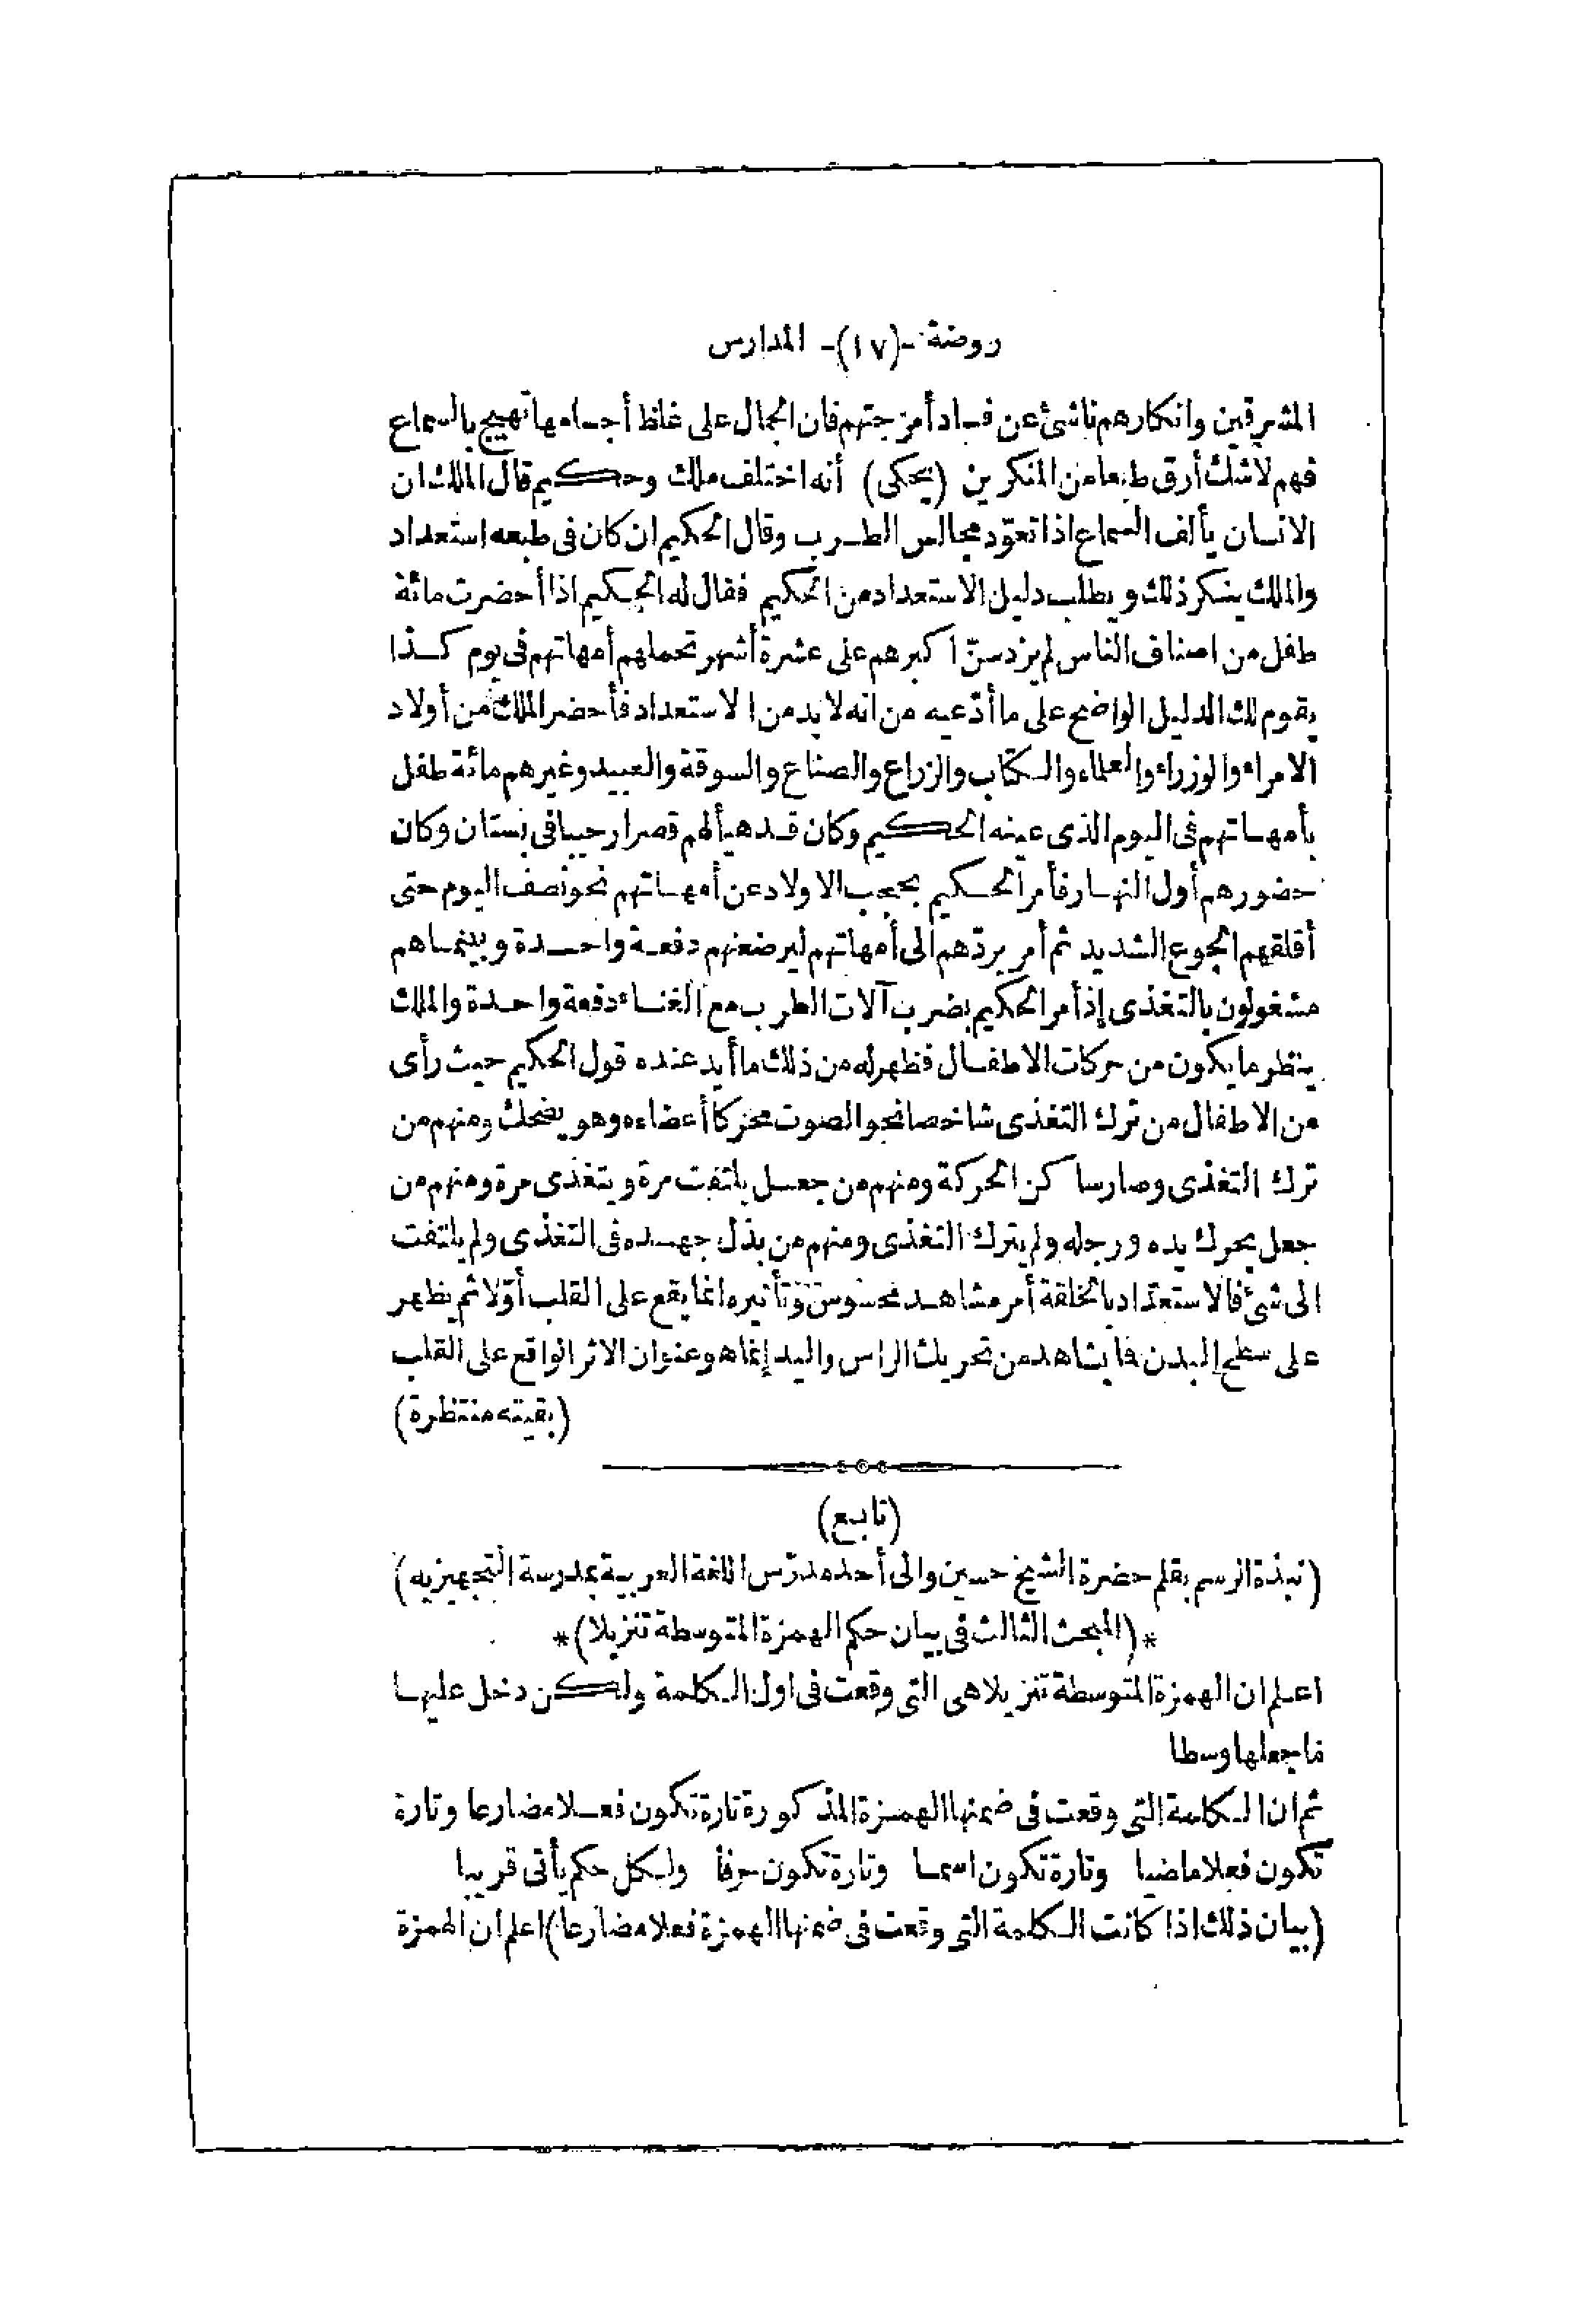 روضة -(١٧)- المدارس
المشرقين وانكارهم ناشئ عن فساد أمزجتهم فان الجمال على غلظ أجسامها تهيج بالسماع
فهم لاشك أرق طبعا من المنكرين (يحكى) أنه اختلف ملك وحكيم قال الملك ان
الانسان يألف السماع اذا تعوّد مجالس الطرب وقال الحكيم ان كان فى طبعه استعداد
والملك ينكر ذلك ويطلب دليل الاستعداد من الحكيم فقال له الحكيم اذا أحضرت مائة
طفل من اصناف الناس لم يزد سنّ اكبرهم على عشرة أشهر تحملهم أمهاتهم فى يوم كذا
يقوم لك الدليل الواضح على ما أدّعيه من انه لا بد من الاستعداد فأحضر الملك من أولاد
الامراء والوزراء والعلماء والكتاب والزراع والصناع والسوقة والعبيد وغيرهم مائة طفل
بأمهاتهم فى اليوم الذى عينه الحكيم وكان قد هيأ لهم قصرا رحيبا فى بستان وكان
حضورهم أول النهار فأمر الحكيم بحجب الاولاد عن أمهاتهم نحو نصف اليوم حتى
أقلقهم الجوع الشديد ثم أمر بردّهم الى أمهاتهم ليرضعنهم دفعة واحدة وبينما هم
مشغولون بالتغذى إذ أمر الحكيم بضرب آلات الطرب مع الغناء دفعة واحدة والملك
ينظر ما يكون من حركات الاطفال فظهر له من ذلك ما أيد عنده قول الحكيم حيث رأى
من الاطفال من ترك التغذى شاخصا نحو الصوت محركا أعضاءه وهو يضحك ومنهم من
ترك التغذى وصار ساكن الحركة ومنهم من جعل يلتفت مرة ويتغذى مرة ومنهم من
جعل يحرك يده ورجله ولم يترك التغذى ومنهم من بذل جهده فى التغذى ولم يلتفت
الى شئ فالاستعداد بالخلقة أمر مشاهد محسوس وتأثيره انما يقع على القلب أوّلا ثم يظهر
على سطح البدن فما يشاهد من تحريك الراس واليد إنما هو عنوان الاثر الواقع على القلب
(بقيته منتظرة)
(تابع)
(نبذة الرسم بقلم حضرة الشيخ حسين والى أحد مدرّس اللغة العربية بمدرسة التجهيزيه)
*(المبحث الثالث فى بيان حكم الهمزة المتوسطة تنزيلا)*
اعلم ان الهمزة المتوسطة تنزيلا هى التى وقعت فى اول الكلمة ولكن دخل عليها
ما جعلها وسطا
ثم ان الكلمة التى وقعت فى ضمنها الهمزة المذكورة تارة تكون فعلا مضارعا وتارة
تكون فعلا ماضيا وتارة تكون اسما وتارة تكون حرفا ولكل حكم يأتى قريبا
(بيان ذلك اذا كانت الكلمة التى وقعت فى ضمنها الهمزة فعلا مضارعا) اعلم ان الهمزة